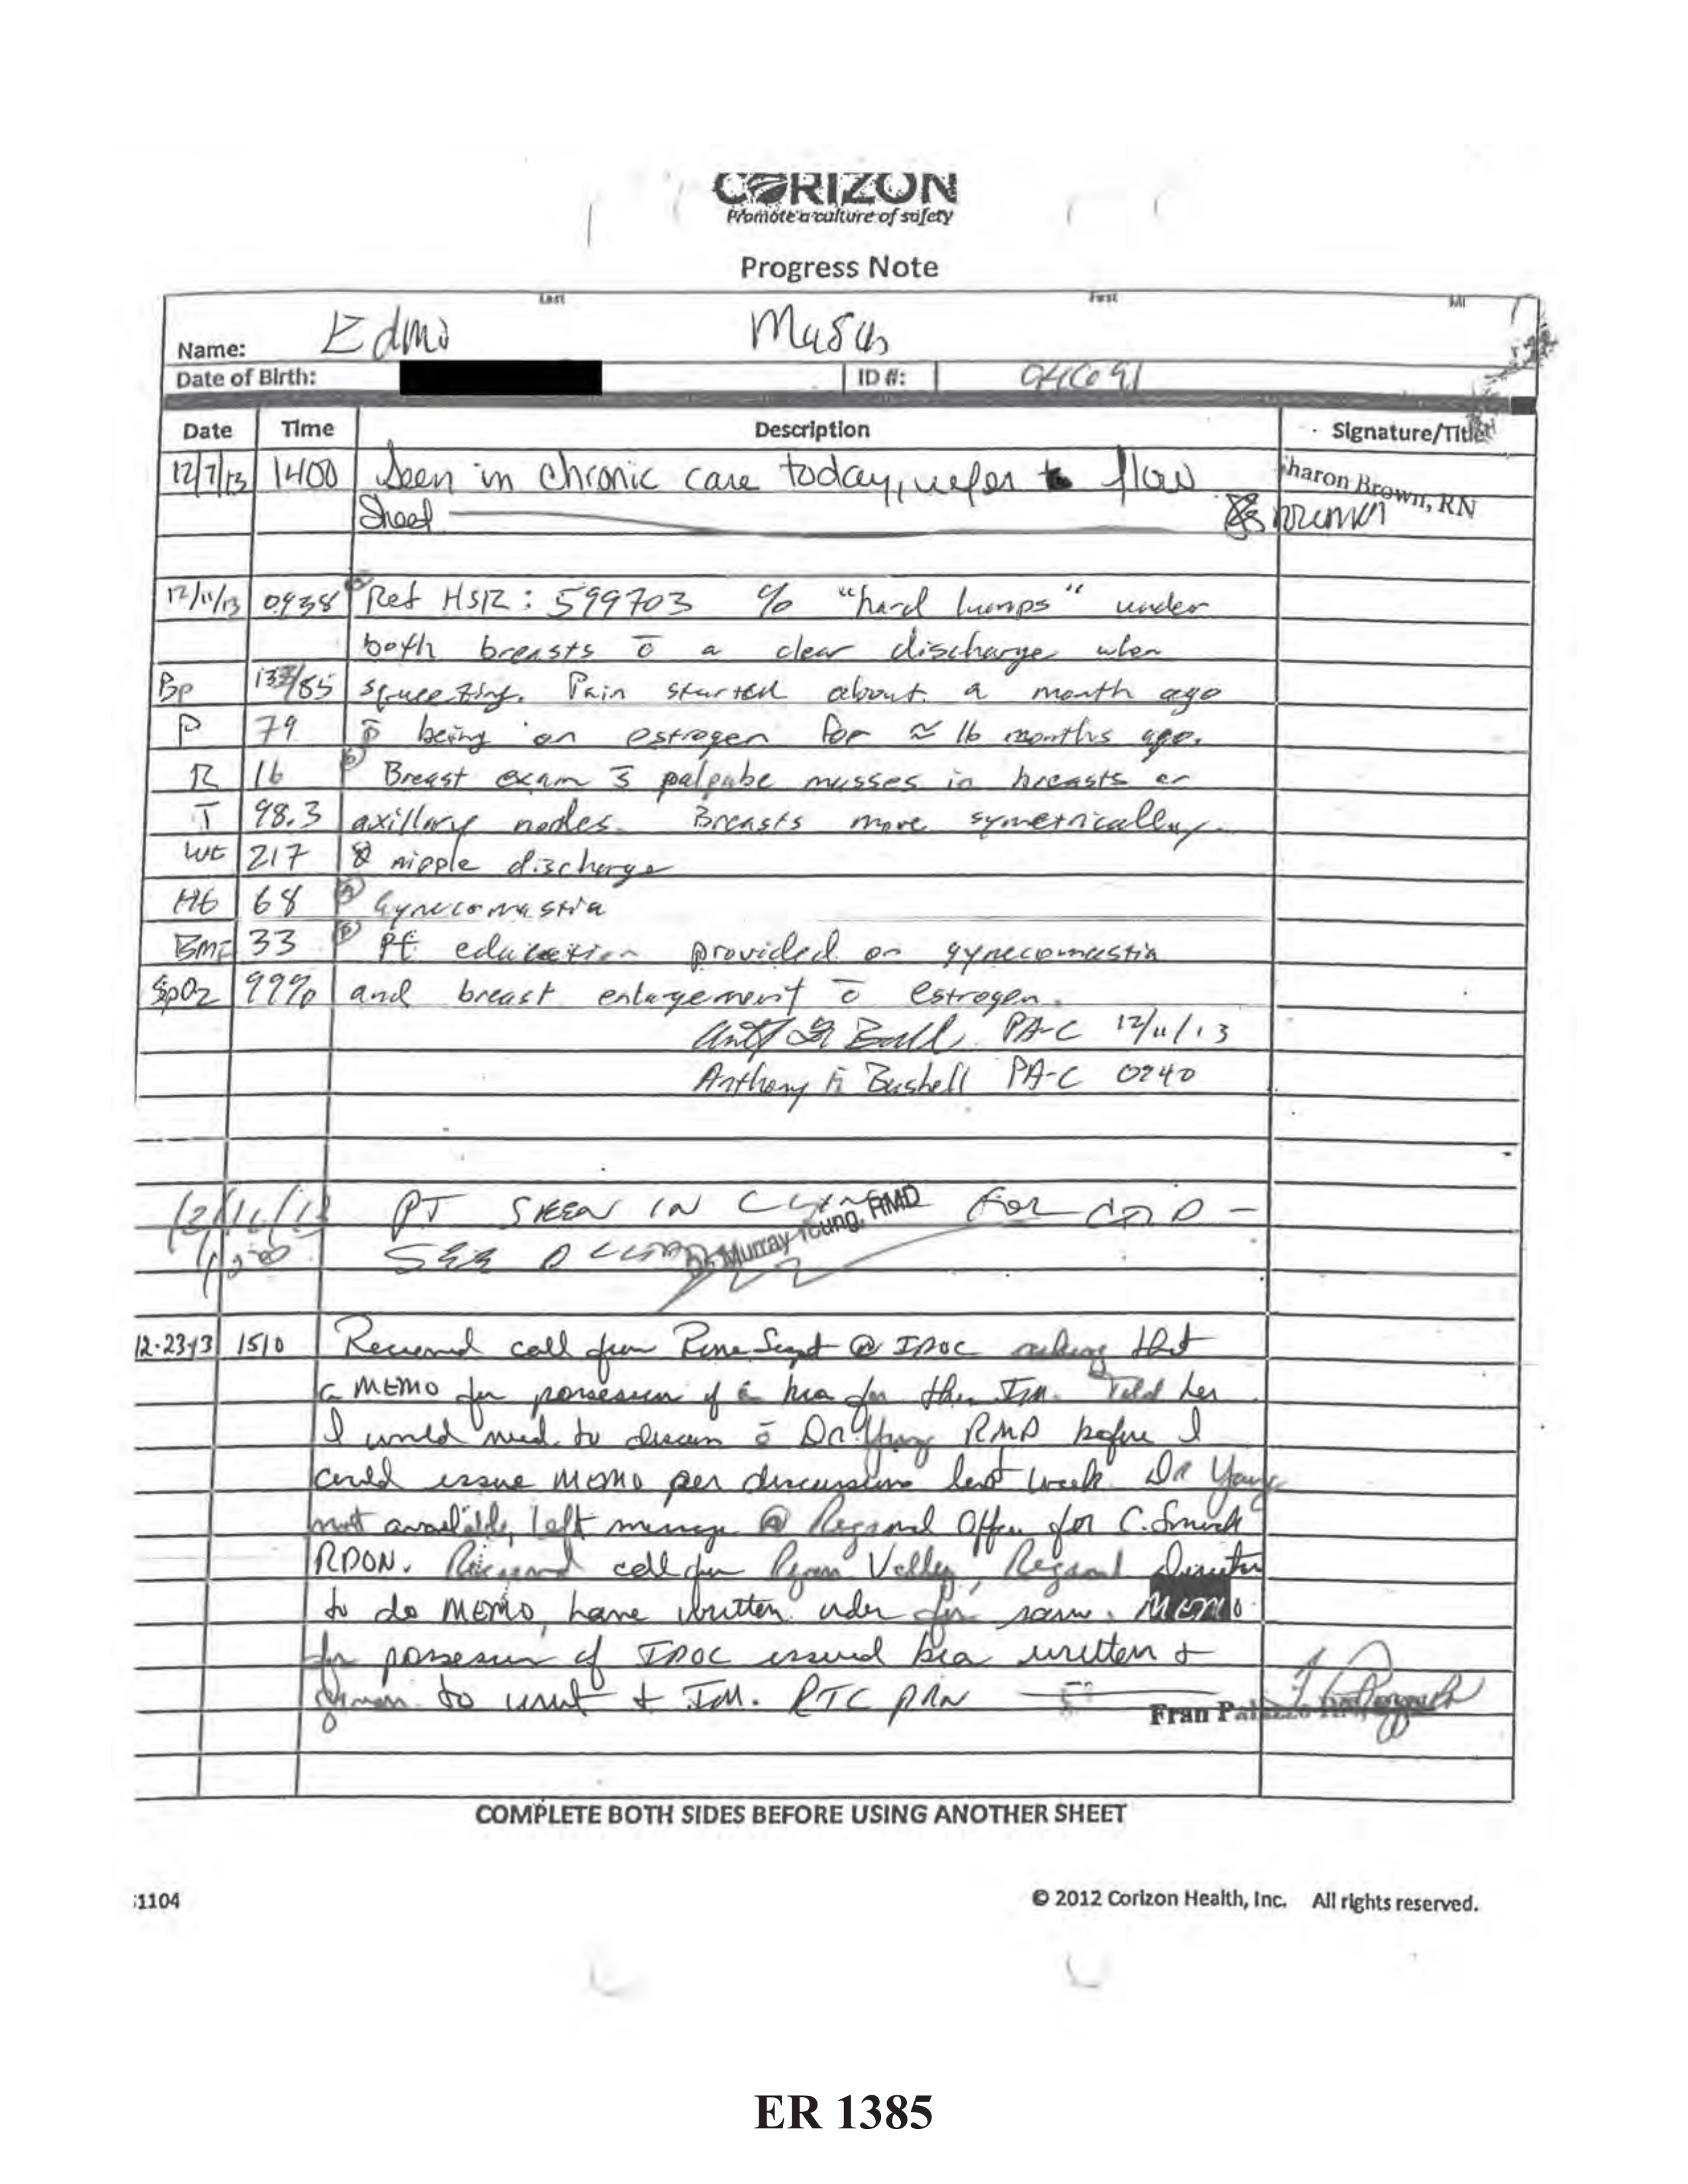 CORIZON
Promote a culture of safety
Progress Note
Last First MI
Name: Edmo Mason
Date of Birth: ID #:
Date Time Description Signature/Title
12/7/13 1400 Seen in chronic care today, refer to flow haron Brown, RN
Sheet
12/11/13 0938 Ref HSR: 599703 c/o "hard lumps" under
both breasts c̄ a clear discharge when
Bp /85 squeezing. Pain started about a month ago
P 79 p̄ being on estrogen for ≈ 16 months ago.
R 16 Breast exam s̄ palpabe masses in breasts or
T 98.3 axillary nodes. Breasts move symetrically.
Wt 217 nipple discharge
Ht 68 Gynecomastia
BMI 33 Pt education provided on gynecomastia
SpO2 99% and breast enlargement c̄ estrogen.
PA-C 12/11/13
Anthony Bushell PA-C 0940
PT SEEN IN CLINIC FOR
SEE Dr Murray Young, RMD
12-23-13 1510 Received call from @ IDOC asking that
a MEMO for possession of a bra for this IM. Told her
I would need to discuss c̄ Dr Young RMD before I
could issue MEMO per discussion last week. DR Young
not available, left message @ Regional Office for C. Smith
RDON. Received call from Ryan Valley, Regional Director
to do MEMO, have written order for same. MEMO
for possession of IDOC issued bra written &
given to unit & IM. RTC PRN
Fran
COMPLETE BOTH SIDES BEFORE USING ANOTHER SHEET
1104 © 2012 Corizon Health, Inc. All rights reserved.
ER 1385